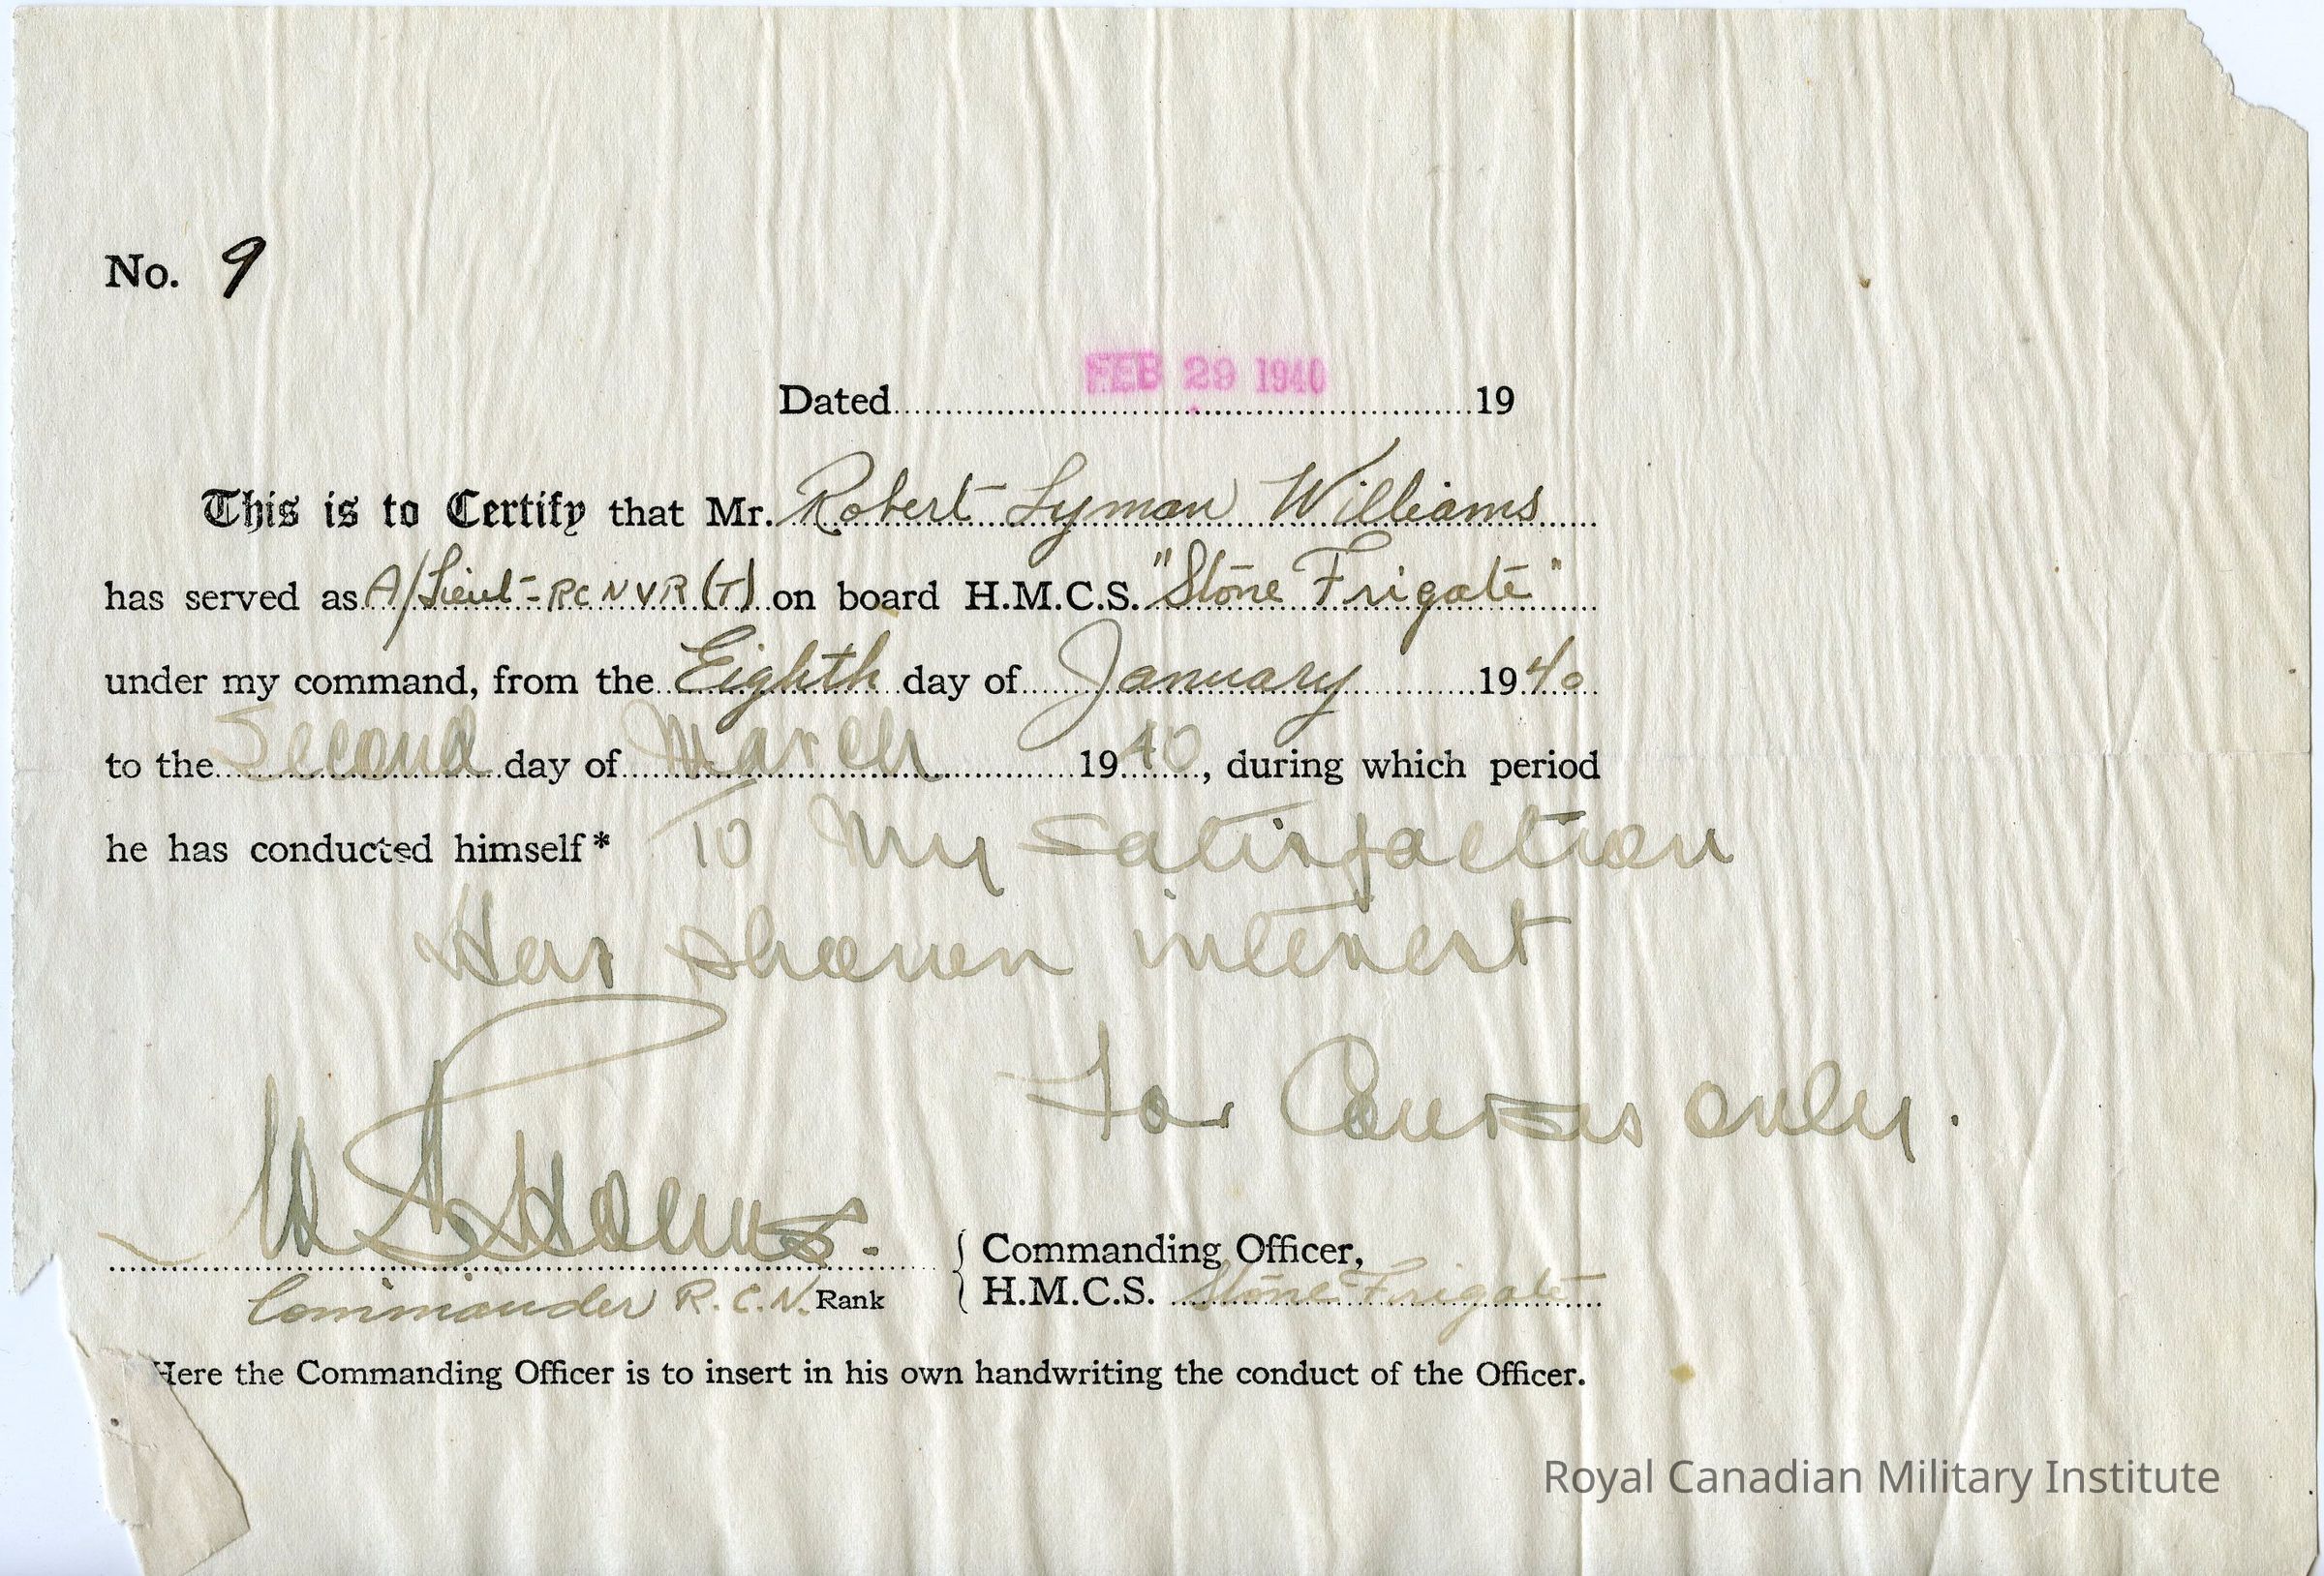 No. 9
FEB 29 1940
Dated 19
This is to Certify that Mr. Robert Lyman Williams
has served as A/Lieut-RCNVR (T) on board H.M.C.S. "Stone Frigate"
under my command, from the Eighth day of January 1940
to the Second day of March 1940, during which period
he has conducted himself* To My satisfaction
Has shown interest
For Courses only.
Commanding Officer,
Commander R.C.N. Rank H.M.C.S. Stone Frigate
Here the Commanding Officer is to insert in his own handwriting the conduct of the Officer.
Royal Canadian Military Institute